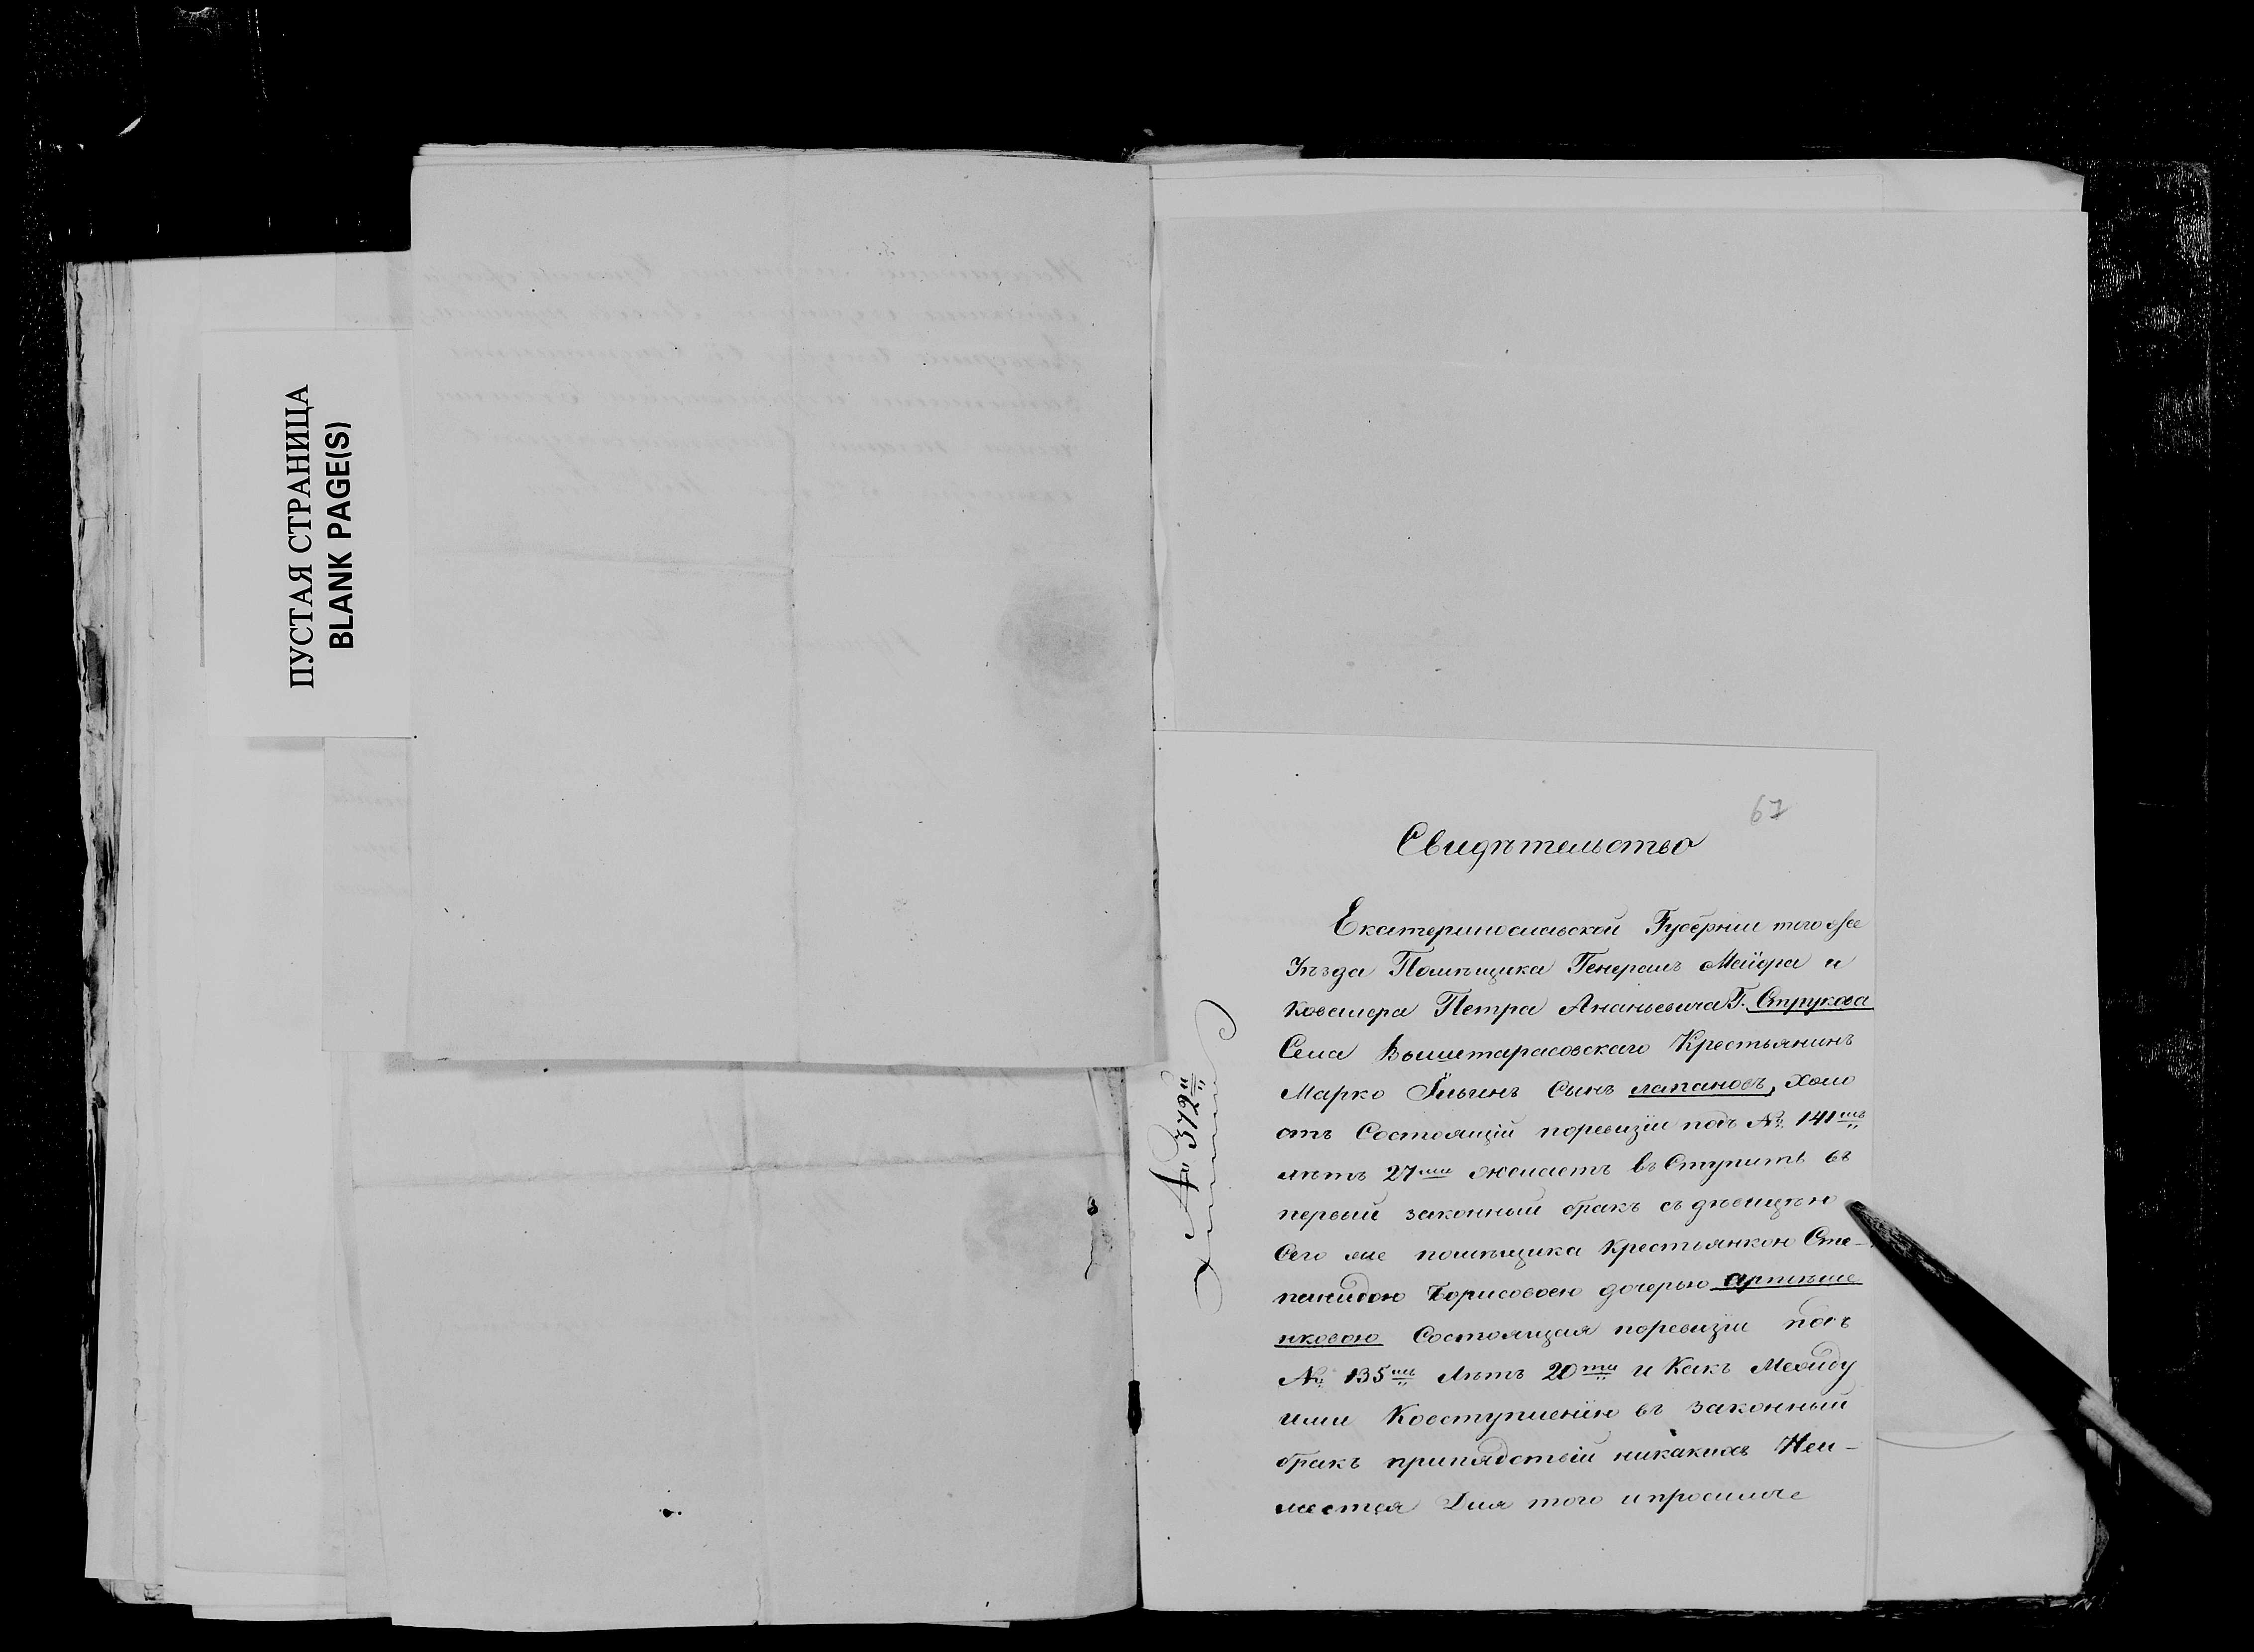 ПУСТАЯ СТРАНИЦА
BLANK PAGE(S)
67
Свидѣтельство
№ 372й
Екатеринославской Губерніи того же
Уѣзда Помѣщика Генералъ Маіора и
Кавалера Петра Ананьевича Г. Струкова
Села Вышетарасовскаго Крестьянинъ
Марко Ильинъ Сынъ лапановъ, холо
стъ Состоящій поревизіи подъ № 141мъ
лѣтъ 27ми желаетъ въ Ступить въ
первый законный бракъ съ дѣвицѣю
Сего же помѣщика Крестьянкою Сте-
панидою Борисовою дочерью артѣме
нковою Состоящая поревизіи подъ
№ 135мъ Лѣтъ 20ти и Какъ Межиду
ими Ковступленію въ законный
бракъ припядствій никакихъ Неи-
меетця Для того и